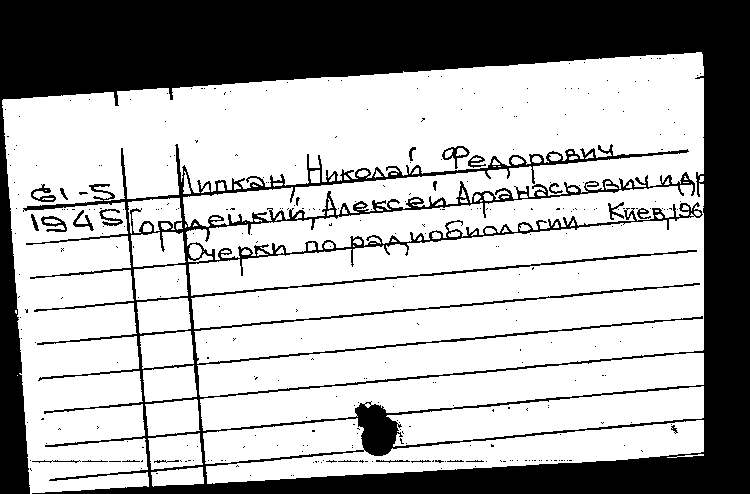 61-5 Липкан, Николай Федорович
1945 Городецкий, Алексей Афанасьевич и др
Очерки по радиобиологии Киев, 196